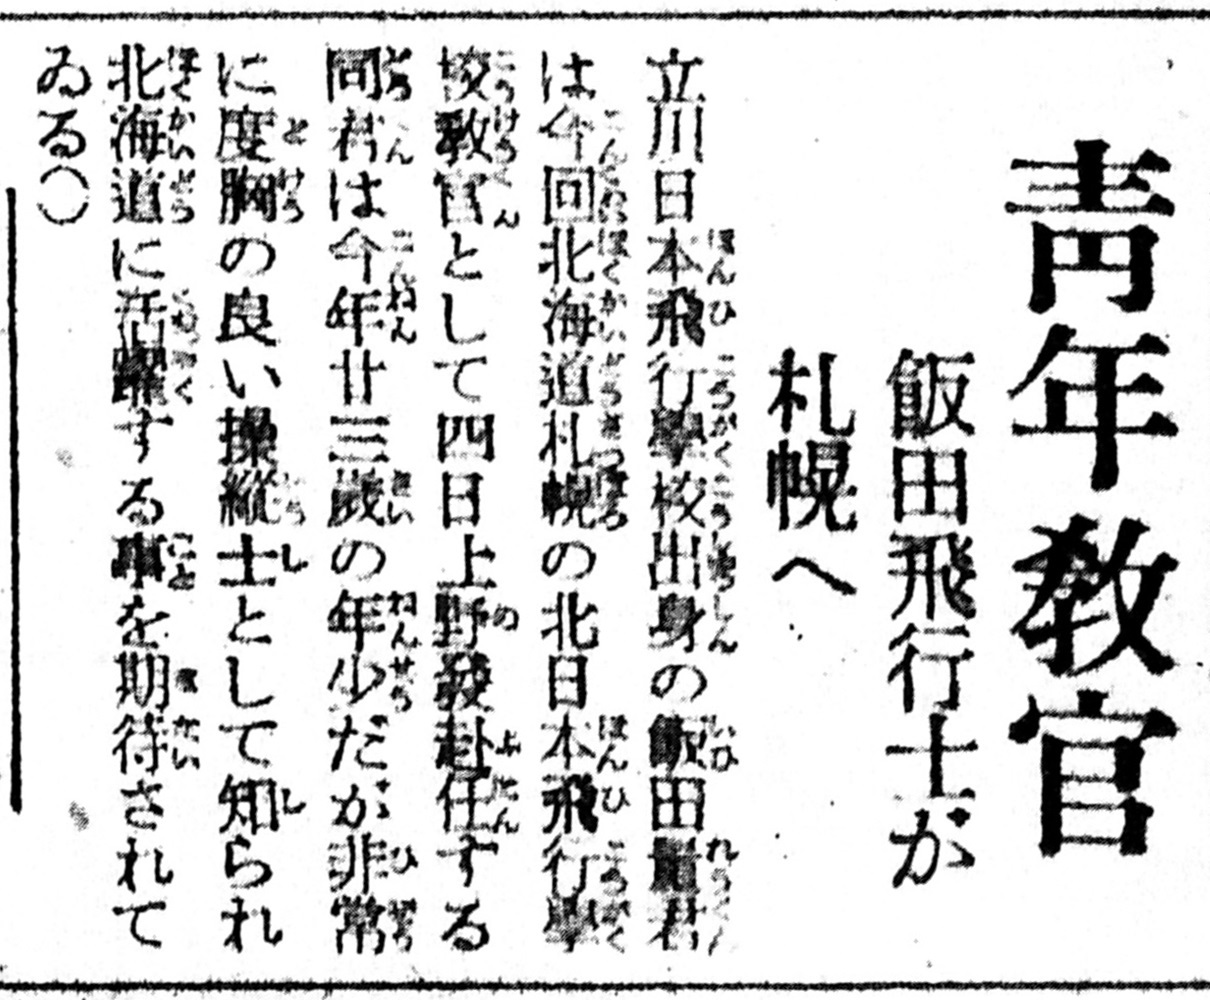 靑年敎官
飯田飛行士が
札幌へ
立川日本飛行學校出身の飯田君
は今回北海道札幌の北日本飛行學
校敎官として四日上野發赴任する
同君は今年廿三歲の年少だが非常
に度胸の良い操縱士として知られ
北海道に活躍する事を期待されて
ゐる○